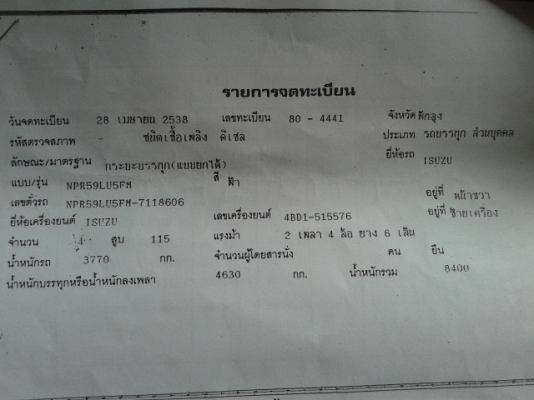 รายการจดทะเบียน
วันจดทะเบียน 28 เมษายน 2538 เลขทะเบียน 80 - 4441 จังหวัด
รหัสตรวจสภาพ - ชนิดเชื้อเพลิง ดีเซล ประเภท รถบรรทุก ส่วนบุคคล
ลักษณะ/มาตรฐาน กระบะบรรทุก(แบบยกได้) ยี่ห้อรถ ISUZU
แบบ/รุ่น NPR59LU5FM สี ฟ้า
เลขตัวรถ NPR59LU5FM-7118606 อยู่ที่ หน้าขวา
ยี่ห้อเครื่องยนต์ ISUZU เลขเครื่องยนต์ 4BD1-515576 อยู่ที่ ซ้ายเครื่อง
จำนวน 4 สูบ 115 แรงม้า 2 เพลา 4 ล้อ ยาง 6 เส้น
น้ำหนักรถ 3770 กก. จำนวนผู้โดยสารนั่ง คน ยืน
น้ำหนักบรรทุกหรือน้ำหนักลงเพลา 4630 กก. น้ำหนักรวม 8400